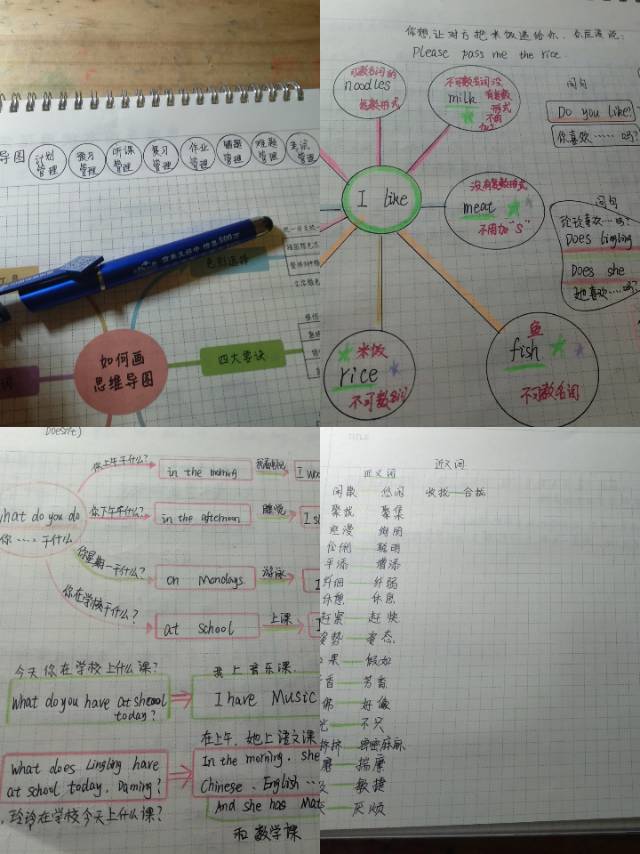 导图
计划管理
预习管理
听课管理
复习管理
作业管理
错题管理
难题管理
考试管理
色彩选择
如何画
思维导图
四大要诀
你想让对方把米饭递给你,你应该说:
Please pass me the rice.
可数名词的
noodles
复数形式
不可数名词没
有复数
形式
milk
不用
加s
I like
没有复数形式
meat
不用加"S"
米饭
rice
不可数名词
鱼
fish
不可数名词
问句
Do you like
你喜欢……吗?
问句
Does lingling
Does she
她喜欢……吗?
Doesn't)
what do you do
你……干什么
你上午干什么?
in the morning
你下午干什么?
in the afternoon
睡觉
你星期一干什么?
on Mondays
游泳
你在学校干什么?
at school
上课
今天你在学校上什么课?
What do you have at school
today?
我上音乐课.
I have Music
What does Lingling have
at school today, Daming?
玲玲在学校今天上什么课?
在上午,她上语文课
In the morning, she
Chinese, English ...
And she has Mat
和数学课
TITLE
近义词
近义词
闲散 悠闲
收拢 合拢
聚拢 聚集
聪明
平添 增添
纤细 纤弱
休憩 休息
赶紧 赶快
姿势 姿态
果 假如
香 芳香
佛 好像
不只
密密麻麻
揣摩
敏捷
厌烦